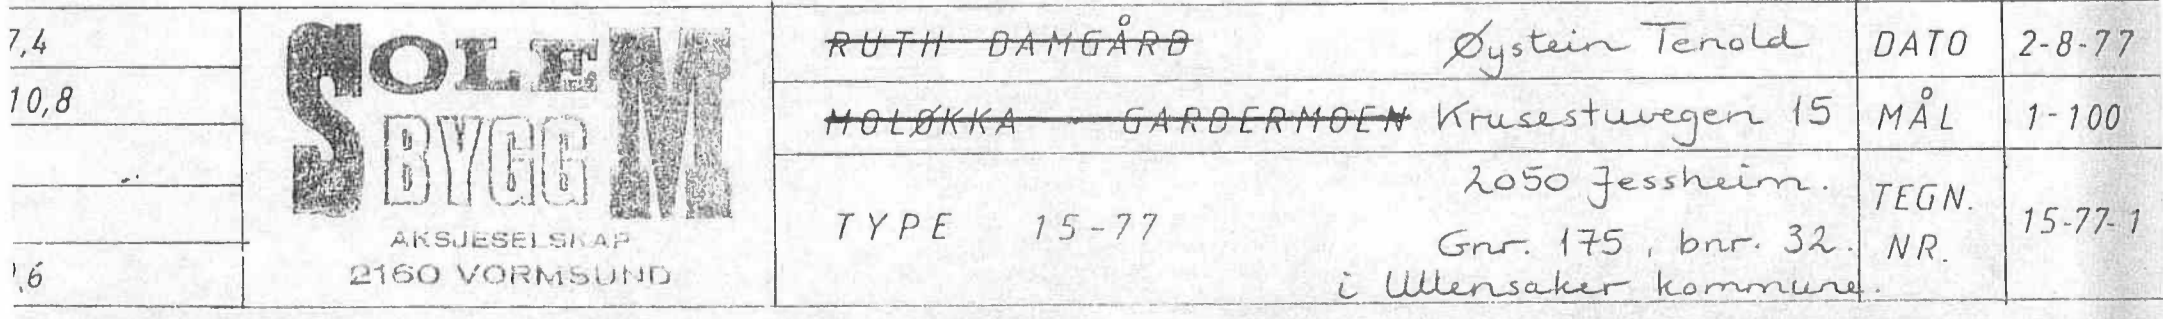 7,4
10,8
,6
SOLEM
BYGG
AKSJESELSKAP
2160 VORMSUND
RUTH DAMGÅRD
Øystein Tenold
MOLØKKA - GARDERMOEN
Krusestuvegen 15
2050 Jessheim.
TYPE 15-77
Gnr. 175, bnr. 32.
i Ullensaker kommune.
DATO 2-8-77
MÅL 1-100
TEGN. NR. 15-77-1